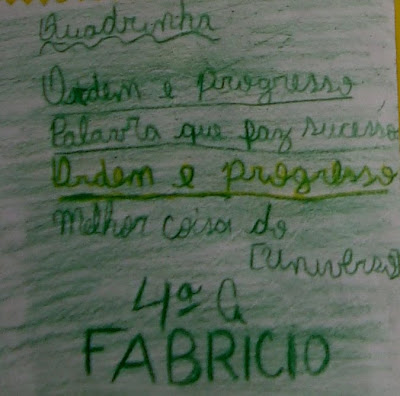 Quadrinha
Ordem e progresso
Palavra que faz sucesso
Ordem e progresso
Melhor coisa do
[universo
4ª A
FABRICIO